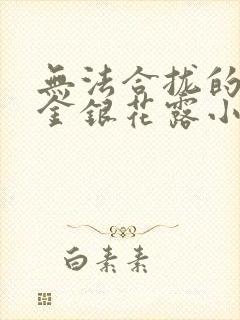 無法合拢的
金銀花露小
白素素